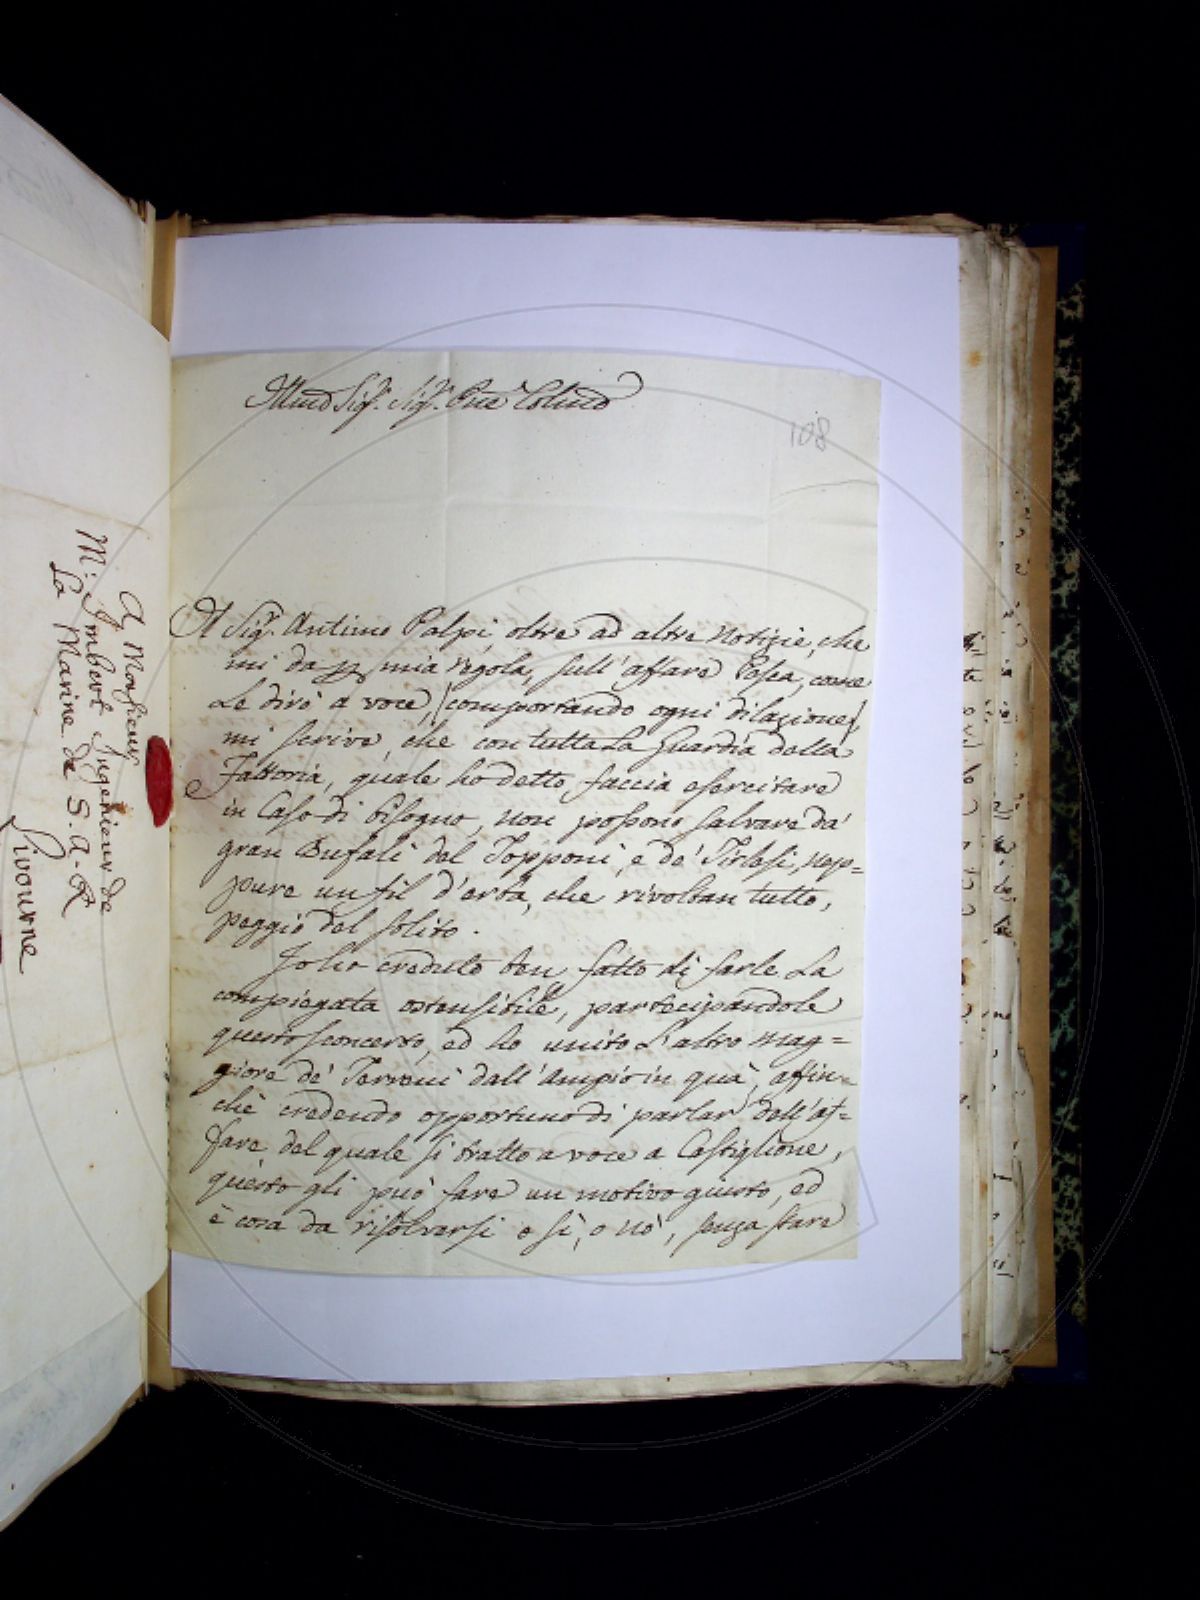 A Monsieur
M: Imbert Ingenieur de
La Marine de S. A. R
Livourne
Illmo Sigr. Sigr. Pne Colmo
108
Il Sigr. Antimo Palpi, oltre ad altre Notizie, che
mi da p mia regola, sull'affare Pesca, come
Le dirò a voce, (comportando ogni dilazione),
mi scrive, che con tutta La Guardia della
Fattoria, quale ho detto, faccia esercitare
in Caso di bisogno, non possono salvare da'
gran Bufali del Topponi, e de' Tirlesi, nep=
pure un fil d'erba, che rivoltan tutto,
peggio del solito.
Io ho creduto ben fatto di farle La
compiegata ostensibile, partecipandole
questo sconcerto, ed ho unito L'altro mag=
giore de' Terreni dall'Ampio in quà, affin=
chè credendo opportuno di parlar dell'af=
fare del quale si trattò a voce a Castiglione,
questo gli può fare un motivo giusto, ed
è cosa da risolversi o sì, o nò, senza stare